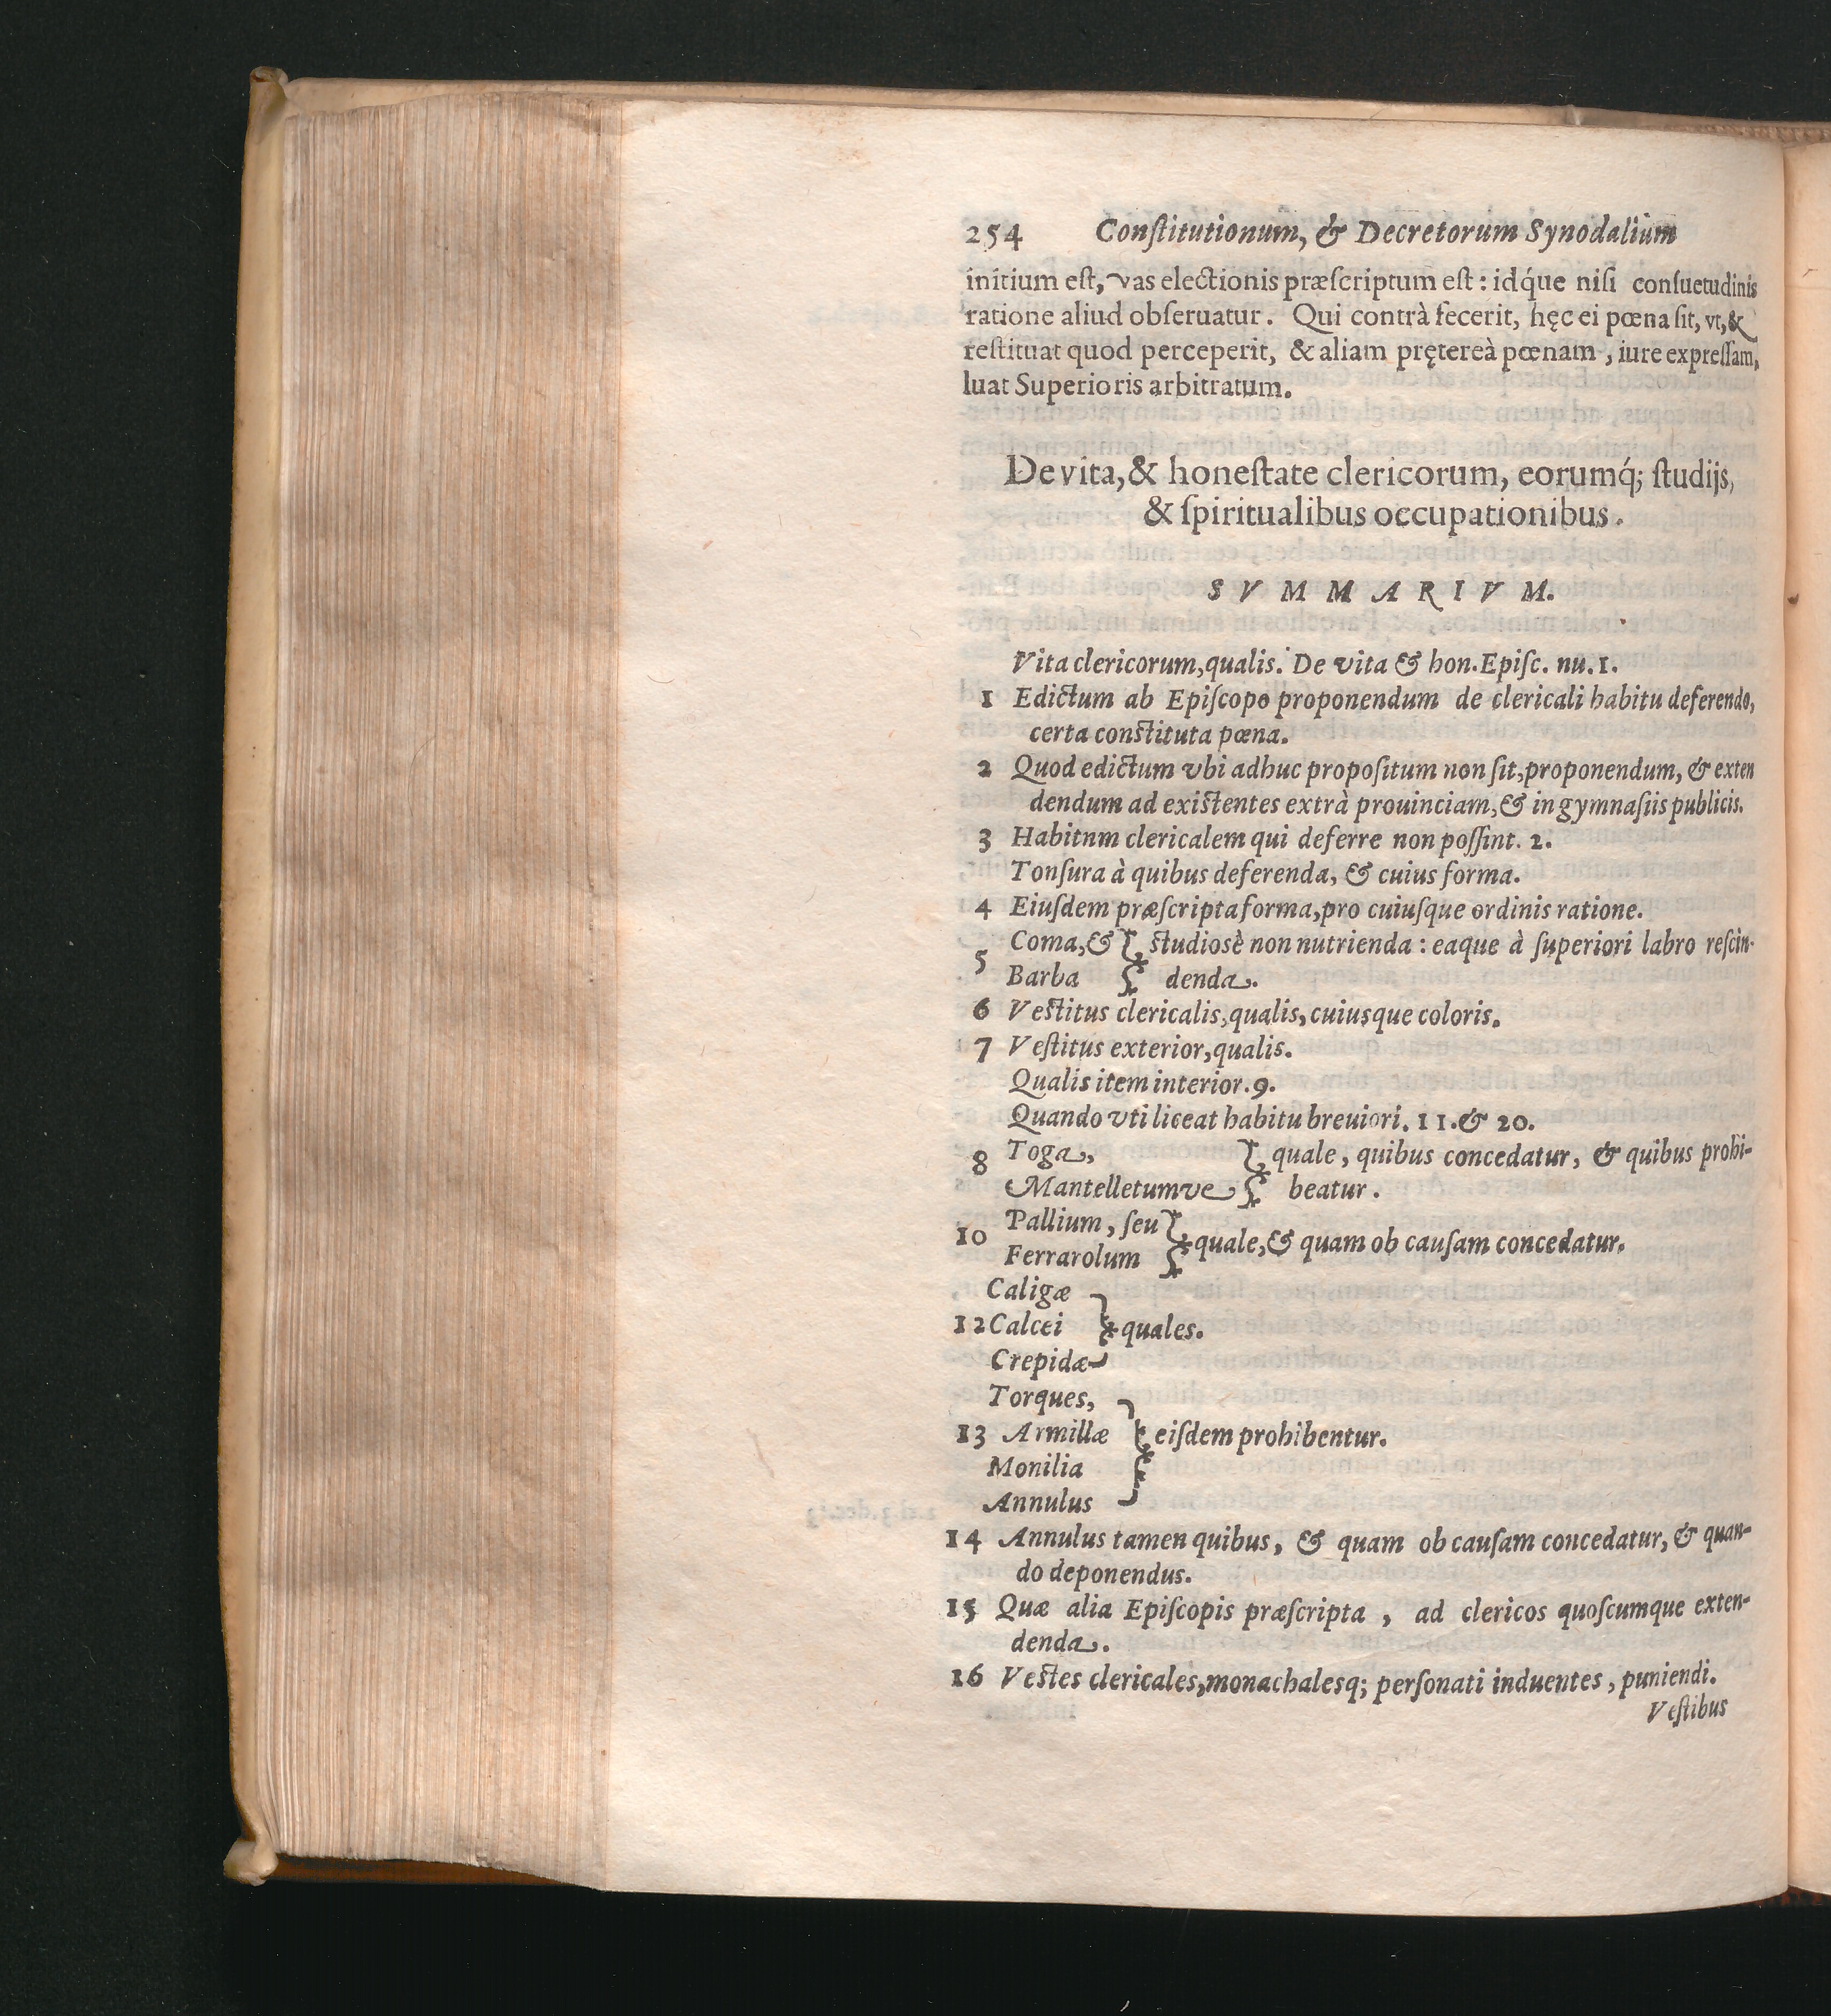 254 Conſtitutionum, & Decretorum Synodaliùm
initium eſt, vas electionis præſcriptum eſt : idq́ue niſi conſuetudinis
ratione aliud obſeruatur. Qui contrà fecerit, hęc ei pœna ſit, vt, &
reſtituat quod perceperit, & aliam pręterеà pœnam, iure expreſſam,
luat Superioris arbitratum.
De vita, & honeſtate clericorum, eorumq́; ſtudijs,
& ſpiritualibus occupationibus.
SVMMARIVM.
Vita clericorum, qualis. De vita & hon. Epiſc. nu. 1.
1 Edictum ab Epiſcopo proponendum de clericali habitu deferendo,
certa conſtituta pœna.
2 Quod edictum vbi adhuc propoſitum non ſit, proponendum, & exten
dendum ad exiſtentes extrà prouinciam, & in gymnaſiis publicis.
3 Habitnm clericalem qui deferre non poſſint. 2.
Tonſura à quibus deferenda, & cuius forma.
4 Eiuſdem præſcripta forma, pro cuiuſque ordinis ratione.
5 Coma, & } ſtudiosè non nutrienda : eaque à ſuperiori labro reſcin-
Barba } denda.
6 Veſtitus clericalis, qualis, cuiusque coloris.
7 Veſtitus exterior, qualis.
Qualis item interior. 9.
Quando vti liceat habitu breuiori. 11. & 20.
8 Toga, } quale, quibus concedatur, & quibus prohi-
Mantelletumve } beatur.
10 Pallium, ſeu } quale, & quam ob cauſam concedatur.
Ferrarolum
Caligæ
12 Calcei } quales.
Crepidæ
Torques,
13 Armillæ } eiſdem prohibentur.
Monilia
Annulus
14 Annulus tamen quibus, & quam ob cauſam concedatur, & quan-
do deponendus.
15 Quæ alia Epiſcopis præſcripta, ad clericos quoſcumque exten-
denda.
16 Veſtes clericales, monachalesq; perſonati induentes, puniendi.
Veſtibus